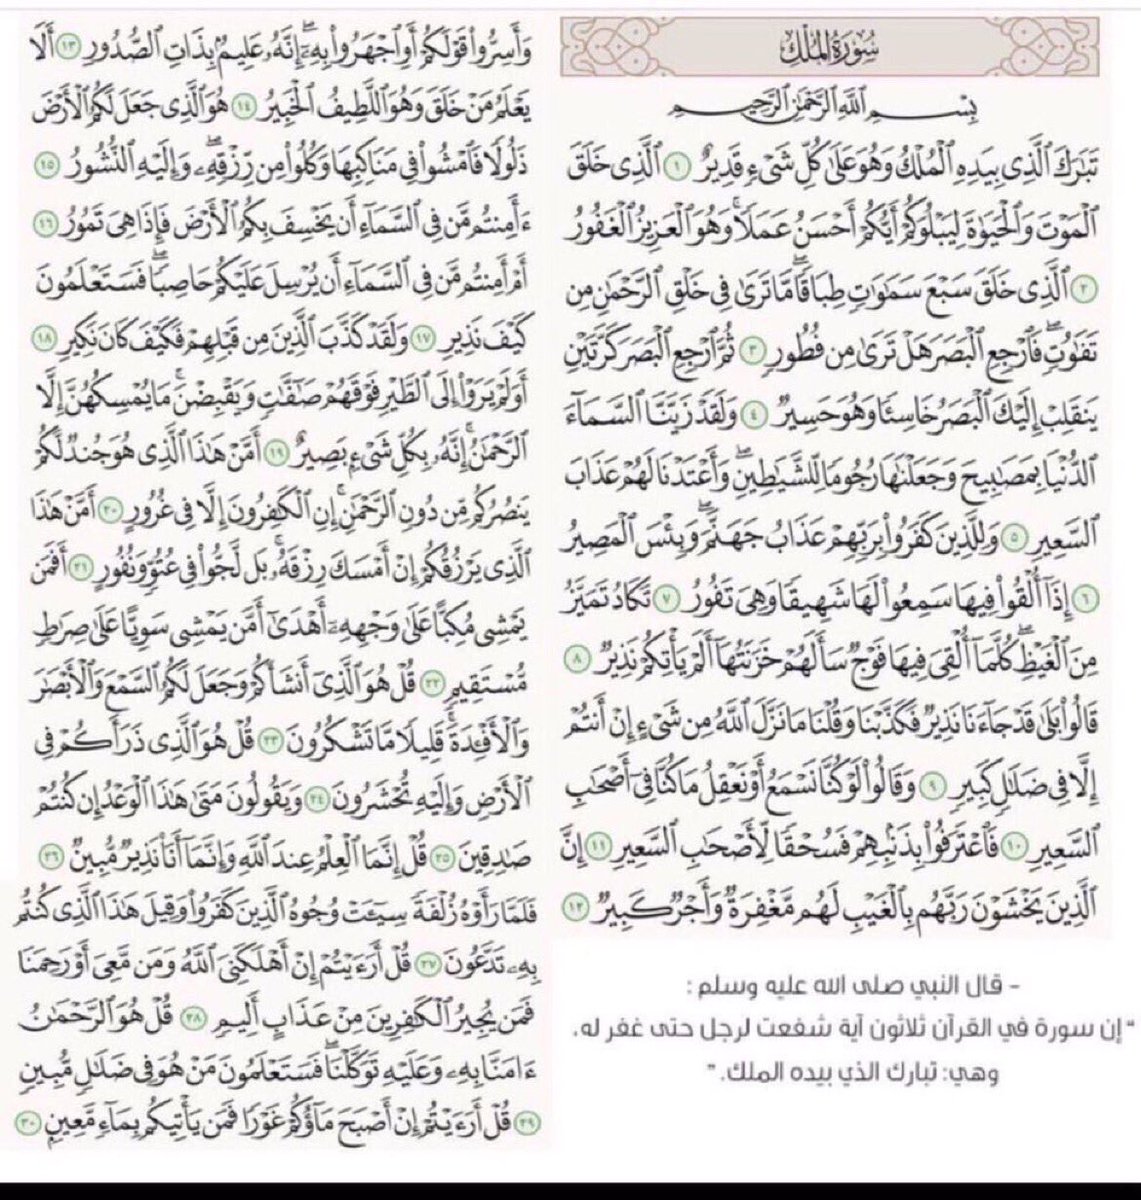 سُورَةُ المُلۡكِ
بِسۡمِ ٱللَّهِ ٱلرَّحۡمَٰنِ ٱلرَّحِيمِ
تَبَٰرَكَ ٱلَّذِي بِيَدِهِ ٱلۡمُلۡكُ وَهُوَ عَلَىٰ كُلِّ شَيۡءٖ قَدِيرٌ ١ ٱلَّذِي خَلَقَ
ٱلۡمَوۡتَ وَٱلۡحَيَوٰةَ لِيَبۡلُوَكُمۡ أَيُّكُمۡ أَحۡسَنُ عَمَلٗاۚ وَهُوَ ٱلۡعَزِيزُ ٱلۡغَفُورُ
٢ ٱلَّذِي خَلَقَ سَبۡعَ سَمَٰوَٰتٖ طِبَاقٗاۖ مَّا تَرَىٰ فِي خَلۡقِ ٱلرَّحۡمَٰنِ مِن
تَفَٰوُتٖۖ فَٱرۡجِعِ ٱلۡبَصَرَ هَلۡ تَرَىٰ مِن فُطُورٖ ٣ ثُمَّ ٱرۡجِعِ ٱلۡبَصَرَ كَرَّتَيۡنِ
يَنقَلِبۡ إِلَيۡكَ ٱلۡبَصَرُ خَاسِئٗا وَهُوَ حَسِيرٞ ٤ وَلَقَدۡ زَيَّنَّا ٱلسَّمَآءَ
ٱلدُّنۡيَا بِمَصَٰبِيحَ وَجَعَلۡنَٰهَا رُجُومٗا لِّلشَّيَٰطِينِۖ وَأَعۡتَدۡنَا لَهُمۡ عَذَابَ
ٱلسَّعِيرِ ٥ وَلِلَّذِينَ كَفَرُواْ بِرَبِّهِمۡ عَذَابُ جَهَنَّمَۖ وَبِئۡسَ ٱلۡمَصِيرُ
٦ إِذَآ أُلۡقُواْ فِيهَا سَمِعُواْ لَهَا شَهِيقٗا وَهِيَ تَفُورُ ٧ تَكَادُ تَمَيَّزُ
مِنَ ٱلۡغَيۡظِۖ كُلَّمَآ أُلۡقِيَ فِيهَا فَوۡجٞ سَأَلَهُمۡ خَزَنَتُهَآ أَلَمۡ يَأۡتِكُمۡ نَذِيرٞ ٨
قَالُواْ بَلَىٰ قَدۡ جَآءَنَا نَذِيرٞ فَكَذَّبۡنَا وَقُلۡنَا مَا نَزَّلَ ٱللَّهُ مِن شَيۡءٍ إِنۡ أَنتُمۡ
إِلَّا فِي ضَلَٰلٖ كَبِيرٖ ٩ وَقَالُواْ لَوۡ كُنَّا نَسۡمَعُ أَوۡ نَعۡقِلُ مَا كُنَّا فِيٓ أَصۡحَٰبِ
ٱلسَّعِيرِ ١٠ فَٱعۡتَرَفُواْ بِذَنۢبِهِمۡ فَسُحۡقٗا لِّأَصۡحَٰبِ ٱلسَّعِيرِ ١١ إِنَّ
ٱلَّذِينَ يَخۡشَوۡنَ رَبَّهُم بِٱلۡغَيۡبِ لَهُم مَّغۡفِرَةٞ وَأَجۡرٞ كَبِيرٞ ١٢
- قال النبي صلى الله عليه وسلم :
" إن سورة في القرآن ثلاثون آية شفعت لرجل حتى غفر له،
وهي: تبارك الذي بيده الملك. "
وَأَسِرُّواْ قَوۡلَكُمۡ أَوِ ٱجۡهَرُواْ بِهِۦٓۖ إِنَّهُۥ عَلِيمُۢ بِذَاتِ ٱلصُّدُورِ ١٣ أَلَا
يَعۡلَمُ مَنۡ خَلَقَ وَهُوَ ٱللَّطِيفُ ٱلۡخَبِيرُ ١٤ هُوَ ٱلَّذِي جَعَلَ لَكُمُ ٱلۡأَرۡضَ
ذَلُولٗا فَٱمۡشُواْ فِي مَنَاكِبِهَا وَكُلُواْ مِن رِّزۡقِهِۦۖ وَإِلَيۡهِ ٱلنُّشُورُ ١٥
ءَأَمِنتُم مَّن فِي ٱلسَّمَآءِ أَن يَخۡسِفَ بِكُمُ ٱلۡأَرۡضَ فَإِذَا هِيَ تَمُورُ ١٦
أَمۡ أَمِنتُم مَّن فِي ٱلسَّمَآءِ أَن يُرۡسِلَ عَلَيۡكُمۡ حَاصِبٗاۖ فَسَتَعۡلَمُونَ
كَيۡفَ نَذِيرِ ١٧ وَلَقَدۡ كَذَّبَ ٱلَّذِينَ مِن قَبۡلِهِمۡ فَكَيۡفَ كَانَ نَكِيرِ ١٨
أَوَلَمۡ يَرَوۡاْ إِلَى ٱلطَّيۡرِ فَوۡقَهُمۡ صَٰٓفَّٰتٖ وَيَقۡبِضۡنَۚ مَا يُمۡسِكُهُنَّ إِلَّا
ٱلرَّحۡمَٰنُۚ إِنَّهُۥ بِكُلِّ شَيۡءِۭ بَصِيرٌ ١٩ أَمَّنۡ هَٰذَا ٱلَّذِي هُوَ جُندٞ لَّكُمۡ
يَنصُرُكُم مِّن دُونِ ٱلرَّحۡمَٰنِۚ إِنِ ٱلۡكَٰفِرُونَ إِلَّا فِي غُرُورٍ ٢٠ أَمَّنۡ هَٰذَا
ٱلَّذِي يَرۡزُقُكُمۡ إِنۡ أَمۡسَكَ رِزۡقَهُۥۚ بَل لَّجُّواْ فِي عُتُوّٖ وَنُفُورٍ ٢١ أَفَمَن
يَمۡشِي مُكِبًّا عَلَىٰ وَجۡهِهِۦٓ أَهۡدَىٰٓ أَمَّن يَمۡشِي سَوِيًّا عَلَىٰ صِرَٰطٖ
مُّسۡتَقِيمٖ ٢٢ قُلۡ هُوَ ٱلَّذِيٓ أَنشَأَكُمۡ وَجَعَلَ لَكُمُ ٱلسَّمۡعَ وَٱلۡأَبۡصَٰرَ
وَٱلۡأَفۡـِٔدَةَۚ قَلِيلٗا مَّا تَشۡكُرُونَ ٢٣ قُلۡ هُوَ ٱلَّذِي ذَرَأَكُمۡ فِي
ٱلۡأَرۡضِ وَإِلَيۡهِ تُحۡشَرُونَ ٢٤ وَيَقُولُونَ مَتَىٰ هَٰذَا ٱلۡوَعۡدُ إِن كُنتُمۡ
صَٰدِقِينَ ٢٥ قُلۡ إِنَّمَا ٱلۡعِلۡمُ عِندَ ٱللَّهِ وَإِنَّمَآ أَنَا۠ نَذِيرٞ مُّبِينٞ ٢٦
فَلَمَّا رَأَوۡهُ زُلۡفَةٗ سِيٓـَٔتۡ وُجُوهُ ٱلَّذِينَ كَفَرُواْ وَقِيلَ هَٰذَا ٱلَّذِي كُنتُم
بِهِۦ تَدَّعُونَ ٢٧ قُلۡ أَرَءَيۡتُمۡ إِنۡ أَهۡلَكَنِيَ ٱللَّهُ وَمَن مَّعِيَ أَوۡ رَحِمَنَا
فَمَن يُجِيرُ ٱلۡكَٰفِرِينَ مِنۡ عَذَابٍ أَلِيمٖ ٢٨ قُلۡ هُوَ ٱلرَّحۡمَٰنُ
ءَامَنَّا بِهِۦ وَعَلَيۡهِ تَوَكَّلۡنَاۖ فَسَتَعۡلَمُونَ مَنۡ هُوَ فِي ضَلَٰلٖ مُّبِينٖ
٢٩ قُلۡ أَرَءَيۡتُمۡ إِنۡ أَصۡبَحَ مَآؤُكُمۡ غَوۡرٗا فَمَن يَأۡتِيكُم بِمَآءٖ مَّعِينِۭ ٣٠